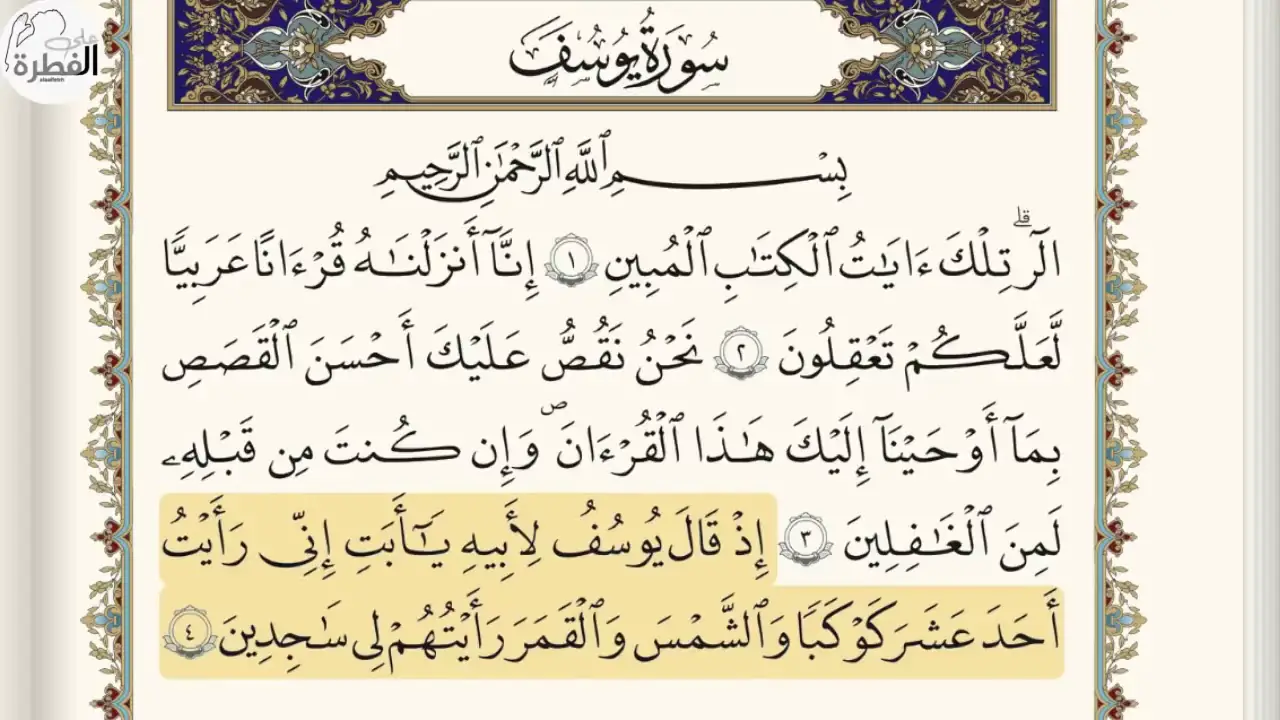 على
الفطرة
سُورَةُ يُوسُفَ
بِسْمِ ٱللَّهِ ٱلرَّحْمَٰنِ ٱلرَّحِيمِ
الٓرۚ تِلْكَ ءَايَٰتُ ٱلْكِتَٰبِ ٱلْمُبِينِ ١ إِنَّآ أَنزَلْنَٰهُ قُرْءَٰنًا عَرَبِيًّا
لَّعَلَّكُمْ تَعْقِلُونَ ٢ نَحْنُ نَقُصُّ عَلَيْكَ أَحْسَنَ ٱلْقَصَصِ
بِمَآ أَوْحَيْنَآ إِلَيْكَ هَٰذَا ٱلْقُرْءَانَ وَإِن كُنتَ مِن قَبْلِهِۦ
لَمِنَ ٱلْغَٰفِلِينَ ٣ إِذْ قَالَ يُوسُفُ لِأَبِيهِ يَٰٓأَبَتِ إِنِّى رَأَيْتُ
أَحَدَ عَشَرَ كَوْكَبًا وَٱلشَّمْسَ وَٱلْقَمَرَ رَأَيْتُهُمْ لِى سَٰجِدِينَ ٤